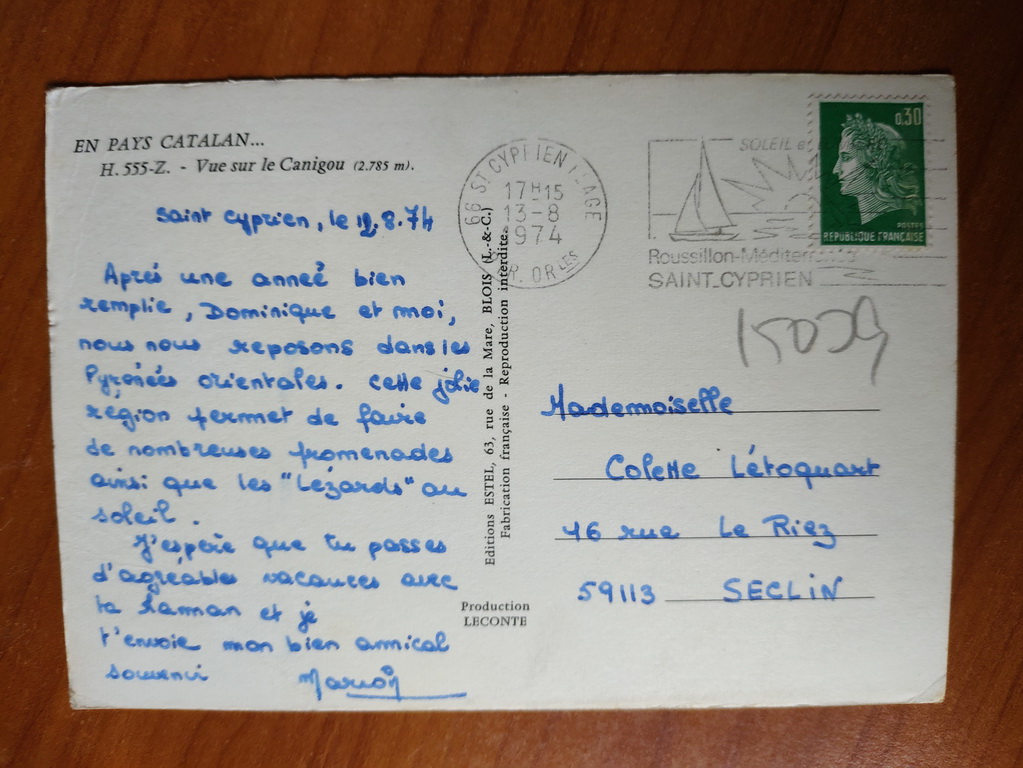 EN PAYS CATALAN...
H. 555-Z. - Vue sur le Canigou (2.785 m).
Saint Cyprien, le 12.8.74
Après une année bien
remplie, Dominique et moi,
nous nous reposons dans les
Pyrénées orientales. Cette jolie
région permet de faire
de nombreuses promenades
ainsi que les "Lézards" au
soleil.
J'espère que tu passes
d'agréables vacances avec
ta Maman et je
t'envoie mon bien amical
souvenir
Editions ESTEL, 63, rue de la Mare, BLOIS (L.-&-C.)
Fabrication française - Reproduction interdite.
Production
LECONTE
66 ST CYPRIEN PLAGE
17H15
13-8
1974
PYR. ORLES
SOLEIL
Roussillon-Méditerranée
SAINT-CYPRIEN
0,30
POSTES
REPUBLIQUE FRANÇAISE
15039
Mademoiselle
Colette Létoquart
46 rue Le Riez
59113 SECLIN